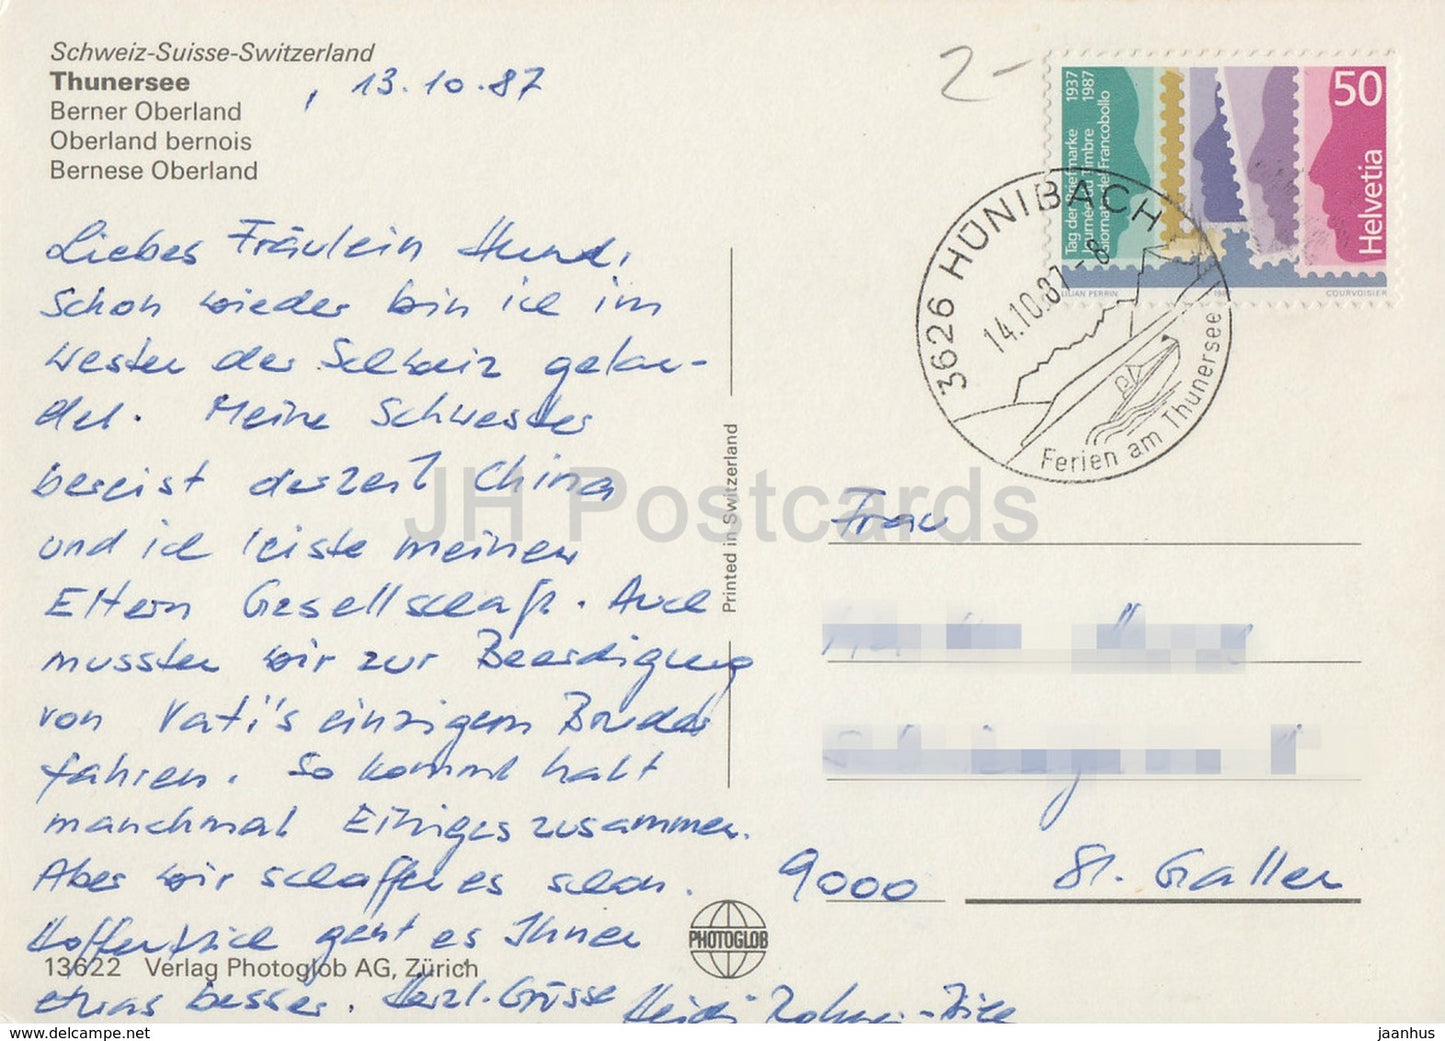 Schweiz-Suisse-Switzerland
Thunersee
Berner Oberland
Oberland bernois
Bernese Oberland
, 13.10.87
2-
Tag der Briefmarke 1937
Journée du timbre 1987
Giornata del Francobollo
50
Helvetia
LILIAN PERRIN
COURVOISIER
3626 HÜNIBACH
14.10.87-8
Ferien am Thunersee
Liebes Fräulein Hund,
Schon wieder bin ich im
Westen der Schweiz gelan-
det. Meine Schwester
bereist derzeit China
und ich leiste meinen
Eltern Gesellschaft. Auch
mussten wir zur Beerdigung
von Vati's einzigem Bruder
fahren. So kommt halt
manchmal Einiges zusammen.
Aber wir schaffen es schon.
Hoffentlich geht es Ihnen
etwas besser. Herzl. Grüsse
Heidi
Printed in Switzerland
JH Postcards
Frau
9000 St. Gallen
PHOTOGLOB
13622 Verlag Photoglob AG, Zürich
www.delcampe.net
jaanhus